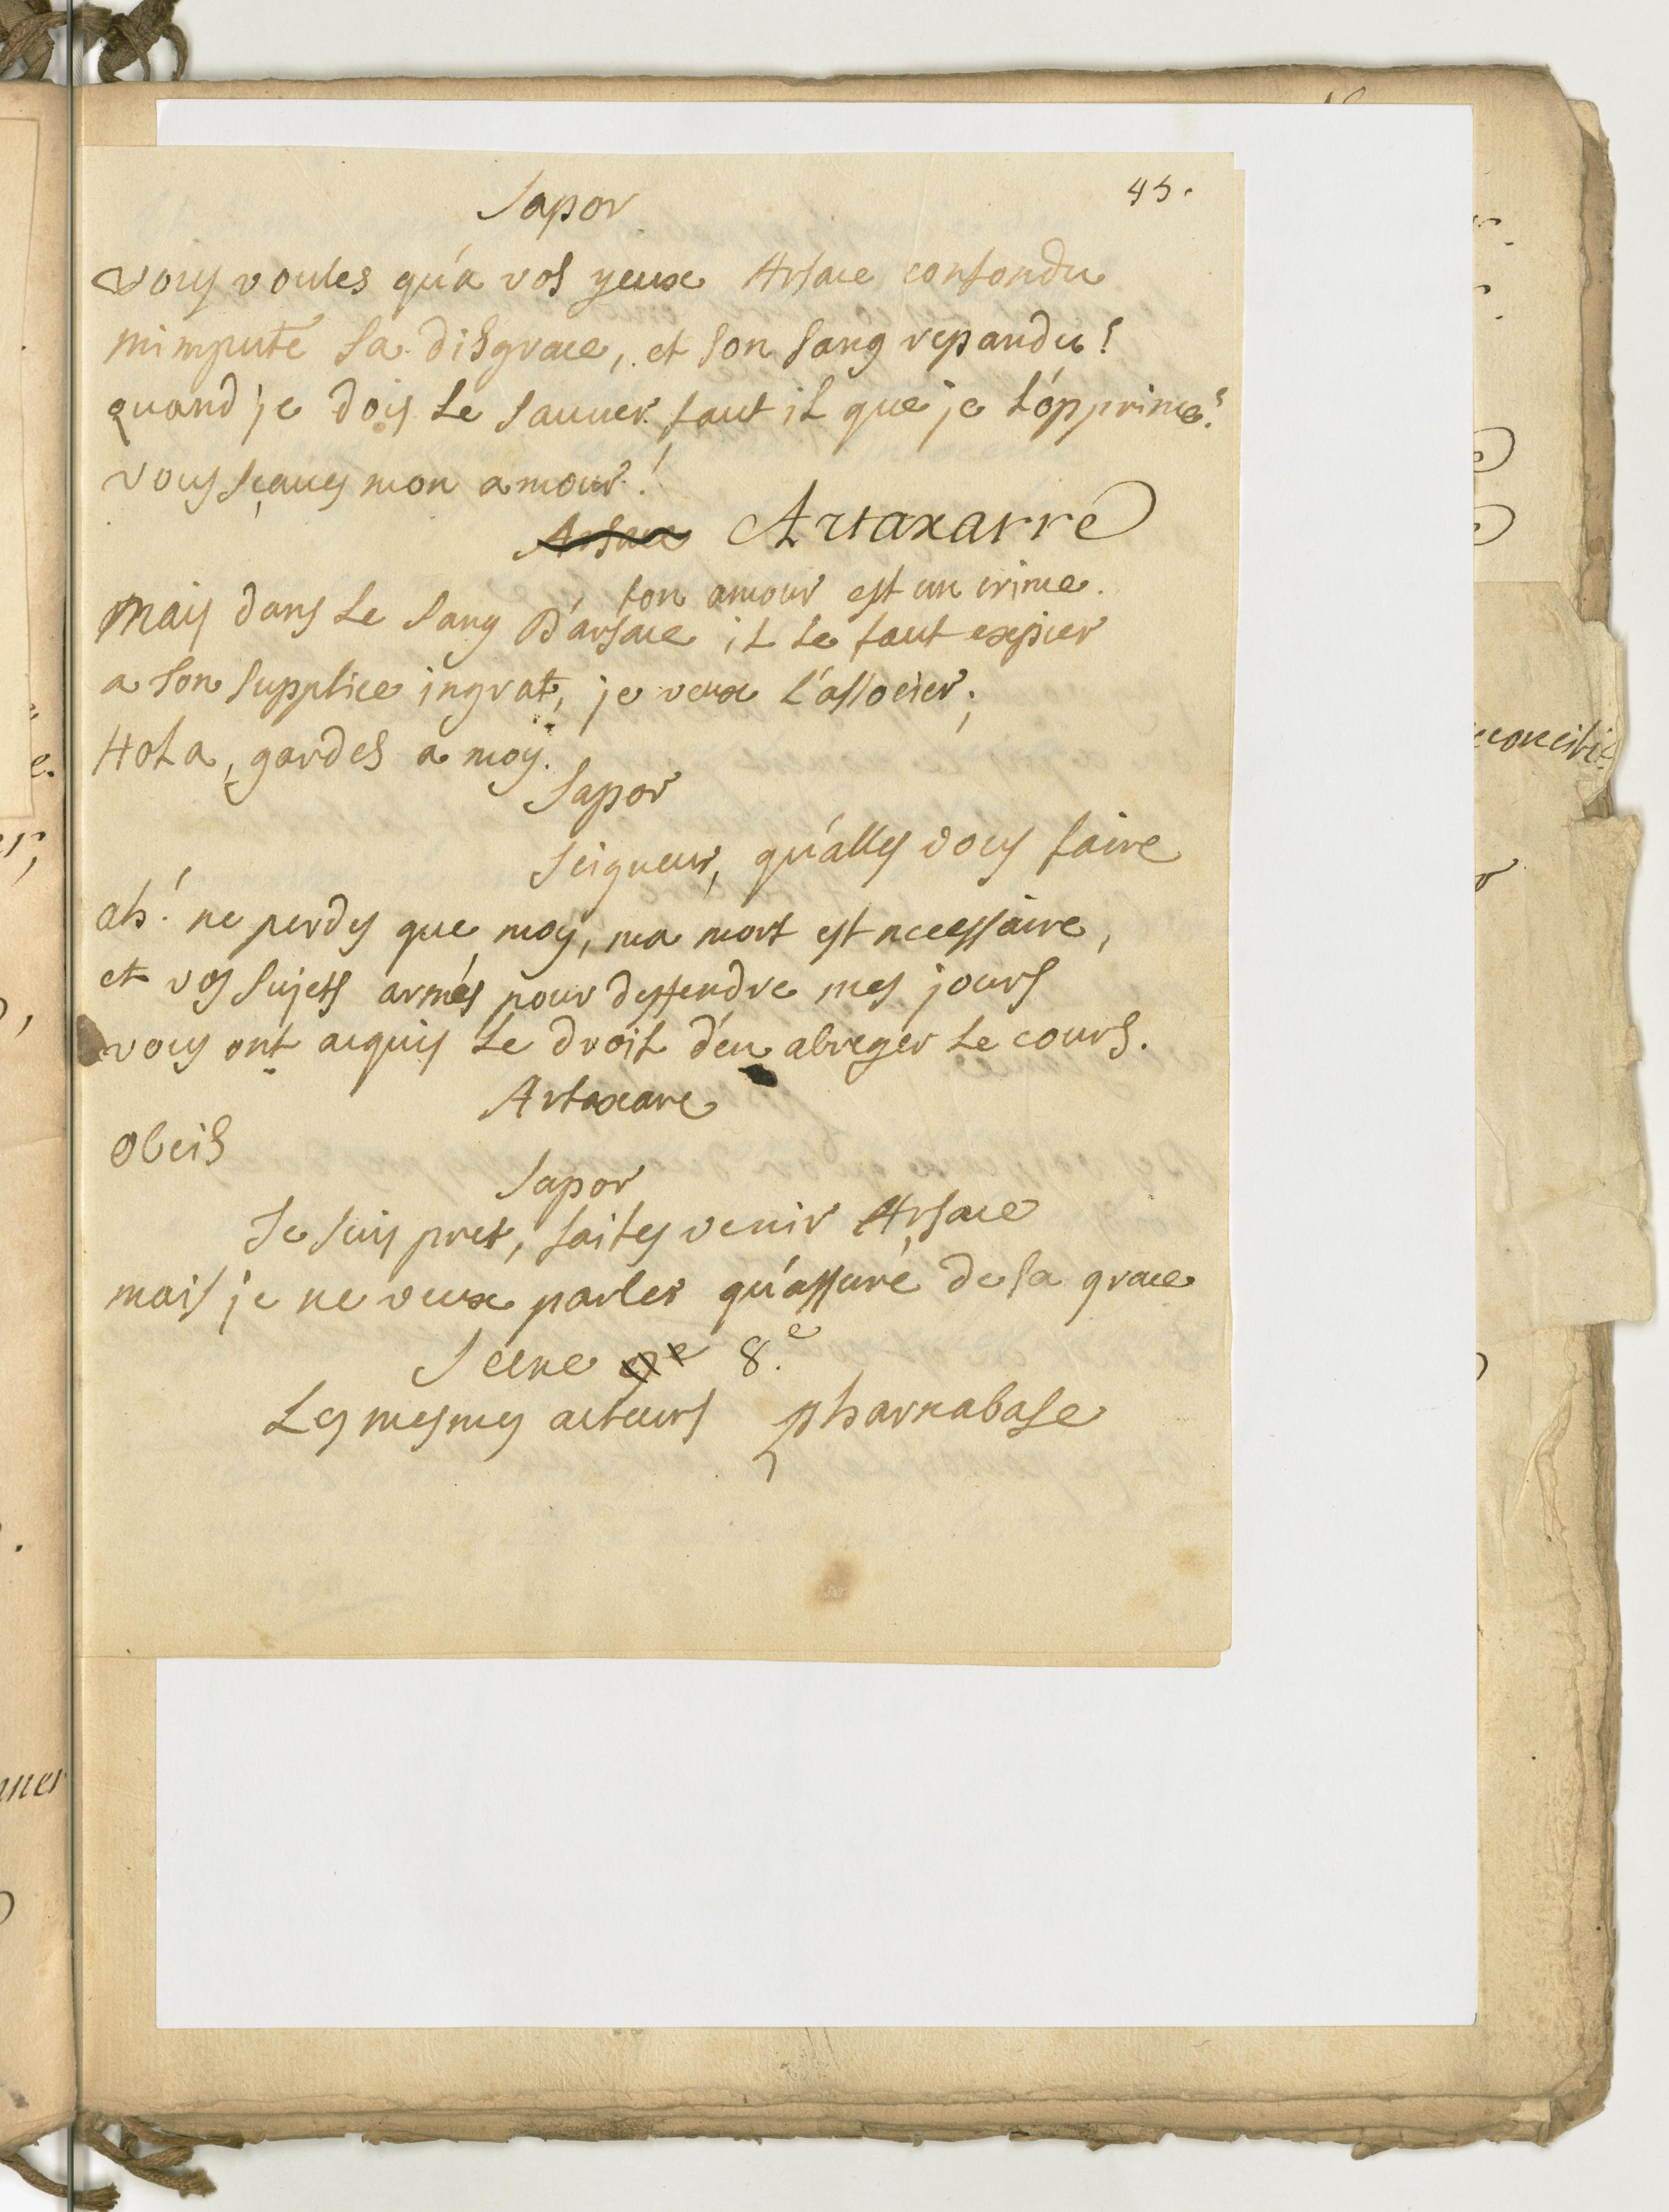 45.
Sapor
vous voules qu'a vos yeux Arsace confondu
m'impute sa disgrace, et son sang repandu!
quand je dois le sauver faut il que je l'opprime?
vous sçaues mon amour!
Arsace Artaxarre
ton amour est un crime.
Mais dans le sang D'arsace il le faut expier
a son supplice ingrat, je veux t'associer;
Hola, gardes a moy.
Sapor
Seigneur, qu'alles vous faire
ah! ne perdes que moy, ma mort est necessaire,
et vos sujets armés pour deffendre mes jours
vous ont acquis le droit d'en abreger le cours.
Artaxare
obeis
Sapor
Je suis pret, faites venir Arsace
mais je ne veux parler qu'assuré de sa grace
Scene 8.e
Les mesmes acteurs pharnabase